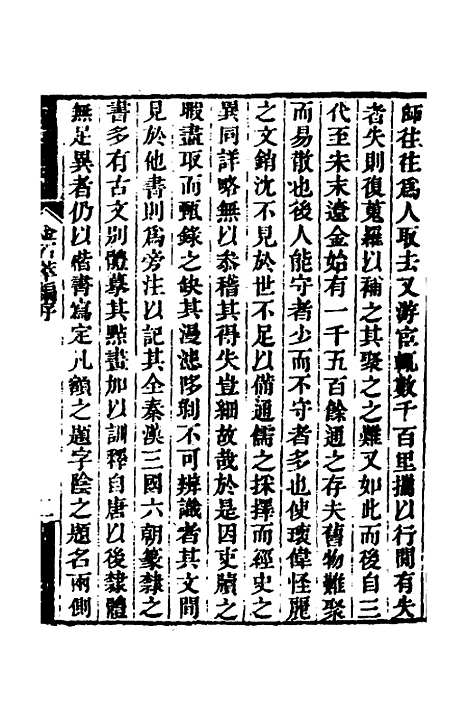 師往往爲人取去又游宦輒數千百里攜以行間有失
者失則復蒐羅以補之其聚之之難又如此而後自三
代至宋末遼金始有一千五百餘通之存夫舊物難聚
而易散也後人能守者少而不守者多也使瓌偉怪麗
之文銷沈不見於世不足以備通儒之採擇而經史之
異同詳略無以叅稽其得失豈細故哉於是因吏牘之
暇盡取而甄錄之缺其漫漶陊剝不可辨識者其文間
見於他書則爲旁注以記其全秦漢三國六朝篆隸之
書多有古文別體摹其點畫加以訓釋自唐以後隸體
無足異者仍以楷書寫定凡額之題字陰之題名兩側
金石萃編序
二